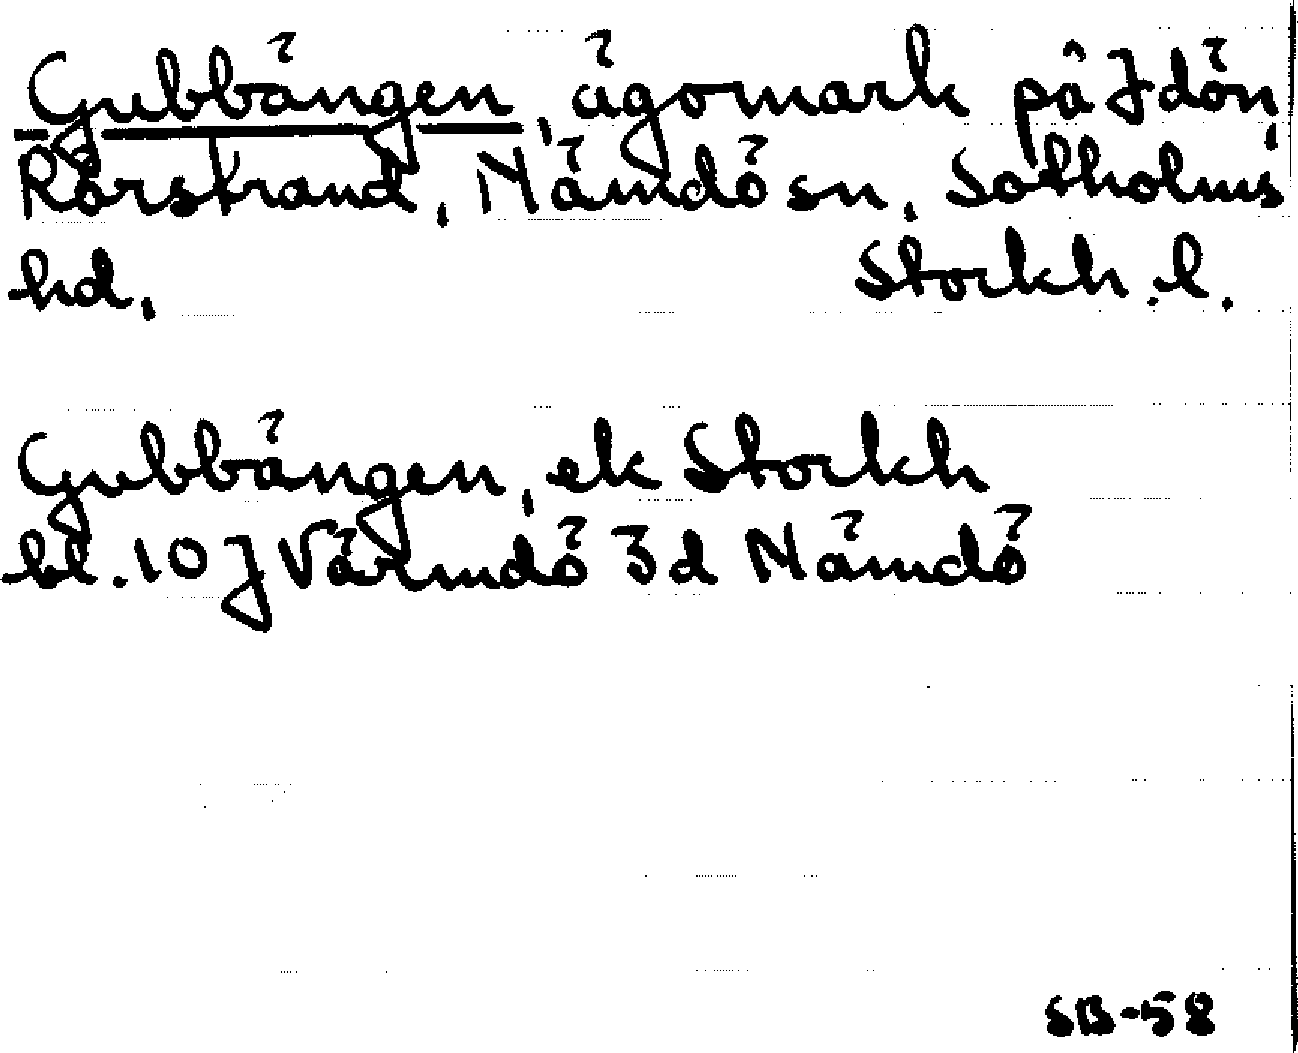 Gubbängen, ägomark på Idön,
Rörstrand, Nämdö sn, Sotholms
hd, Stockh. l.
Gubbängen, ek Stockh
bl. 10 J Värmdö 3d Nämdö
SB-58